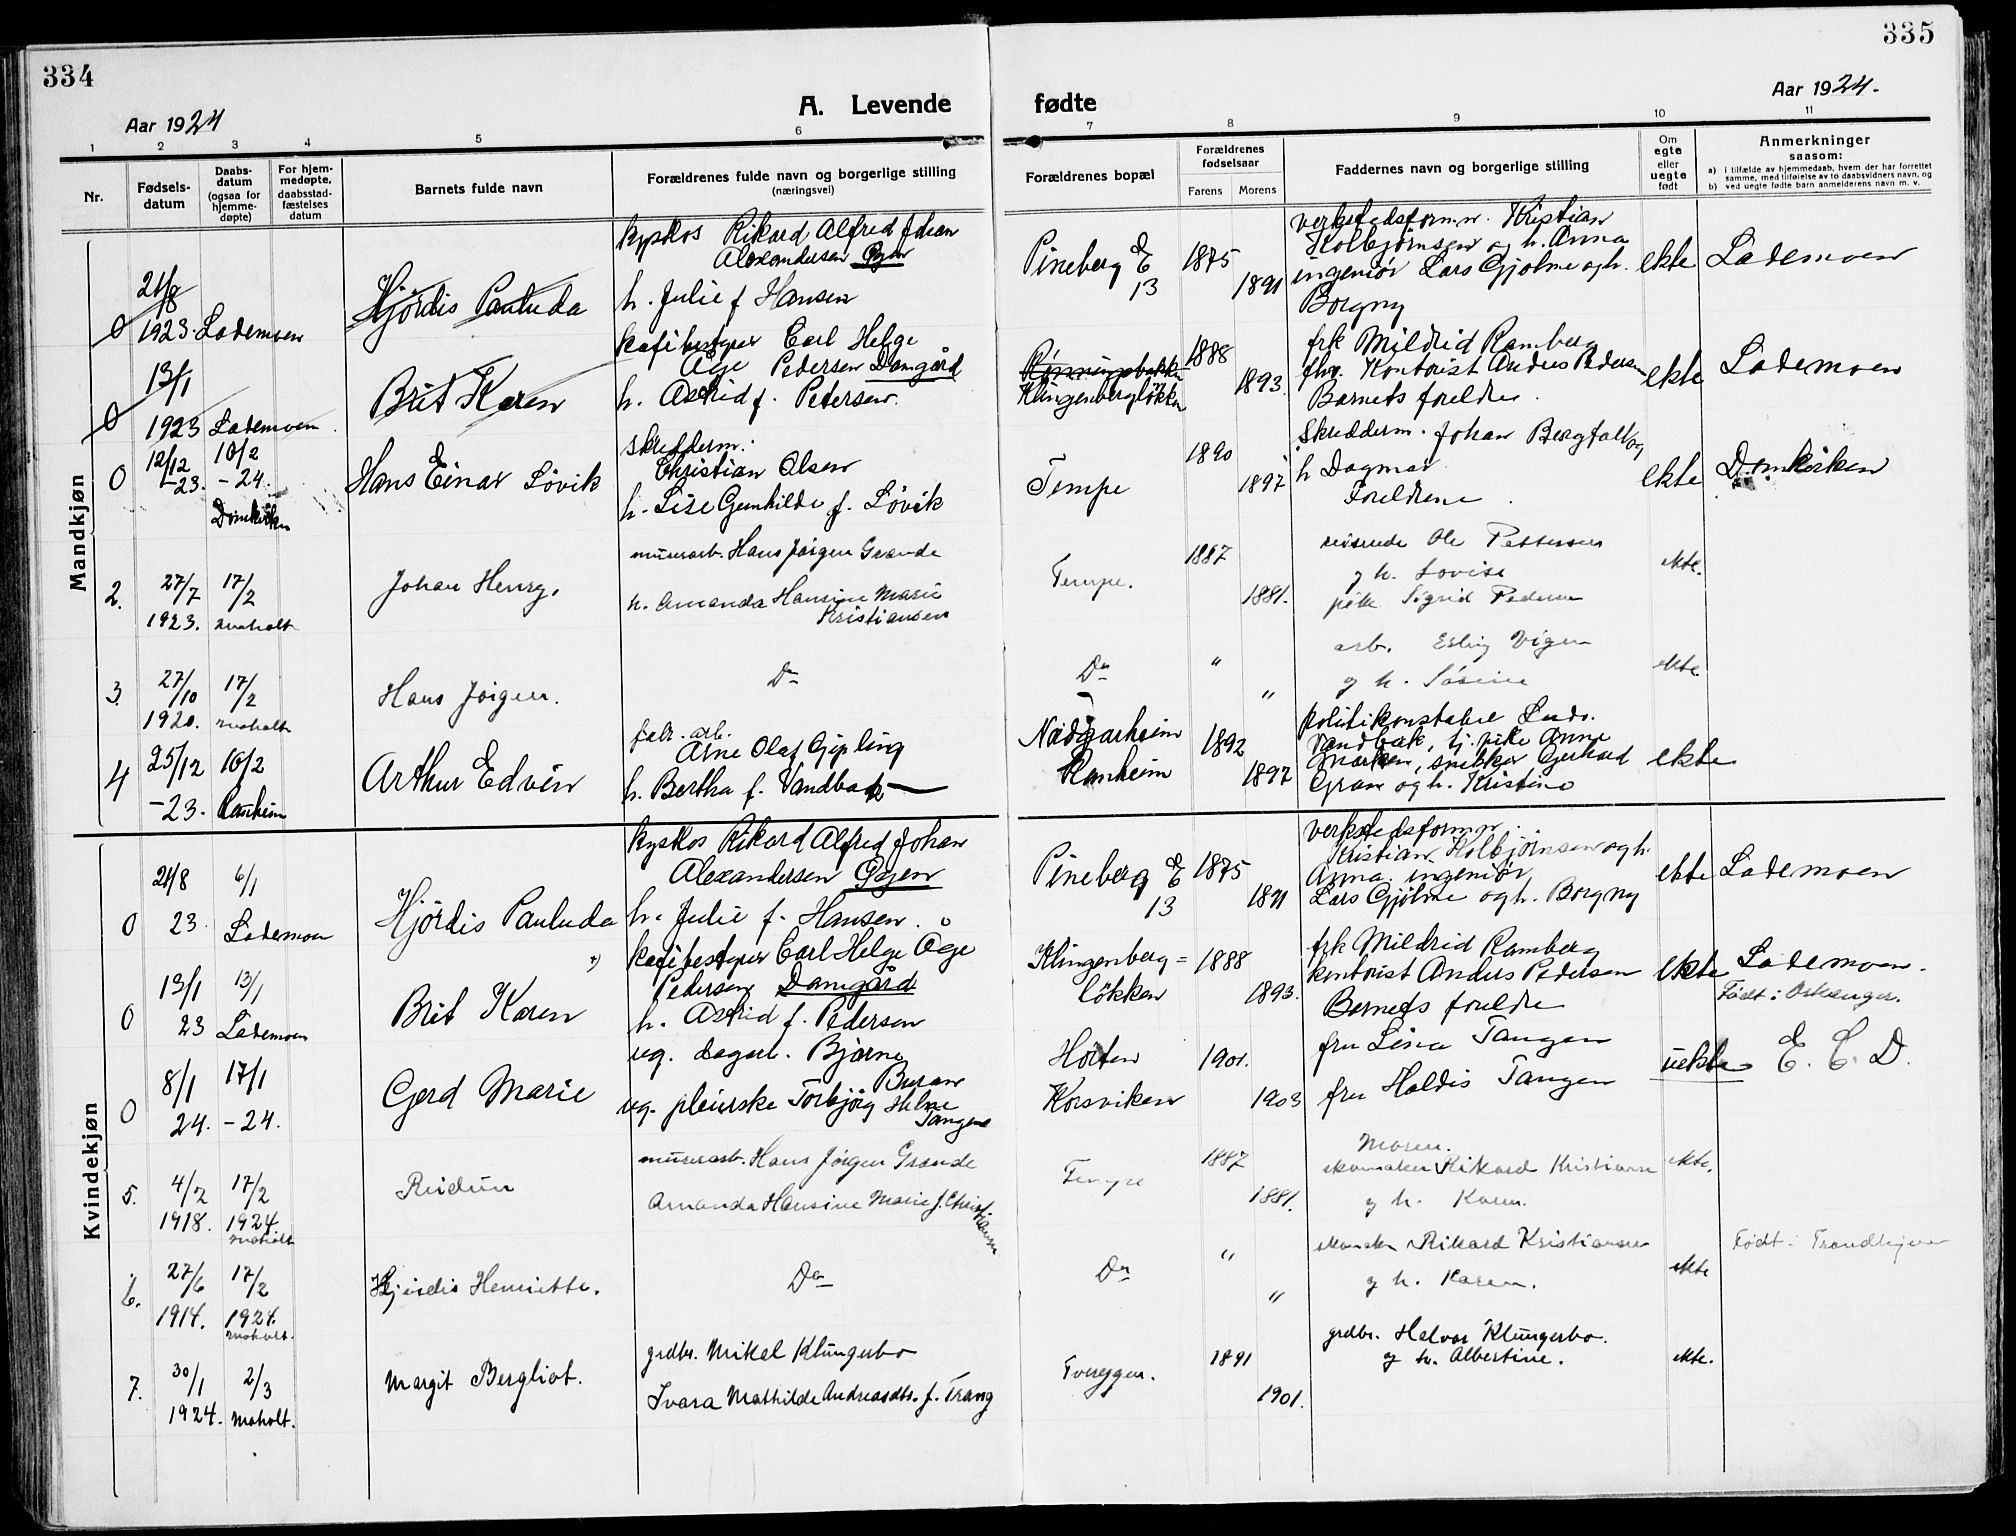 334
335
Aar 1924
A. Levende
fødte
Aar 1924.
1 2 3 4 5 6 7 8 9 10 11
Nr.
Fødsels-
datum
Daabs-
datum
(ogsaa for
hjemme-
døpte)
For hjem-
medøpte,
daabsstad-
fæstelses
datum
Barnets fulde navn
Forældrenes fulde navn og borgerlige stilling
(næringsvei)
Forældrenes bopæl
Forældrenes
fødselsaar
Farens
Morens
Faddernes navn og borgerlige stilling
Om
egte
eller
uegte
født
Anmerkninger
saasom:
a) i tilfælde av hjemmedaab, hvem der har forrettet
samme, med tilføielse av to daabsvidners navn, og
b) ved uegte fødte barn anmelderens navn m. v.
Mandkjøn
0
21/8
1923.
Lademoen
Hjördis Pauluda
Rikard Alfred Johan
Alexandersen Gyen
h. Julie f Hansen
Pineberg E
13
1875
1891
verkstedsform.n. Kristian
Kolbjörnsen og h. Anna
ingeniör Lars Gjölme og h.
Borgny
ekte
Lademoen
0
13/1
1923
Lademoen
Brit Karen
kafébestyrer Carl Helge
Åge Pedersen Damgård
h. Astrid f. Petersen.
Klingenberglökken
1888
1893.
frk Mildrid Ramberg
Kontorist Anders Pedersen
Barnets foreldre.
ekte
Lademoen
0
12/12
-23.
10/2
-24.
Domkirken
Hans Einar Lövik
skredderm.
Christian Olsen
h. Lise Gunhilde f. Lövik
Tempe
1890
1897
Skredderm. Johan Bergfall og
h Dagmar
Foreldrene
ekte
Domkirken
2.
27/7
1923.
17/2
moholt
Johan Henry.
murerarb. Hans Jørgen Grande
h. Amanda Hansine Marie
Kristiansen
Tempe.
1887
1881.
reisende Ole Pettersen
og h. Lovise
pike Sigrid Pedersen
ekte.
3.
27/10
1920.
17/2
moholt
Hans Jørgen.
Do
Do
"
"
arb. Esling Vigen
og h. Sørine
ekte.
4
25/12
-23.
10/2
Ranheim
Arthur Edvin
fabr. arb.
Arne Olaf Gipling
h. Bertha f. Vandbak
Nådgarheim
Ranheim
1892
1897
politikonstabel Ludv.
Vandbak, tj. pike Anne
Marken, snekker Gerhard
Gram og h. Kristine
ekte
Kvindekjøn
0
21/8
23.
6/1
Lademoen
Hjördis Pauluda
Rikard Alfred Johan
Alexandersen Gyen
h. Julie f. Hansen
Pineberg E
13
1875
1891
verkstedsform.n.
Kristian Kolbjörnsen og h.
Anna. ingeniör
Lars Gjölme og h. Borgny
ekte
Lademoen
0
13/1
23
13/1
Lademoen
Brit Karen
kafébestyrer Carl Helge Åge
Pedersen Damgård
h. Astrid f. Pedersen
Klingenberg=
lökken
1888
1893.
frk Mildrid Ramberg
kontorist Anders Pedersen
Barnets foreldre
ekte
Lademoen.
Født i Orkanger.
0
8/1
24.
17/1
-24.
Gerd Marie
ug. dagarb. Bjarne
Buran
ug. pleierske Torbjörg Helene
Tangen
Horten
Korsviken
1901.
1903
fru Lina Tangen
fru Haldis Tangen
uekte
E. C. D.
5.
4/2
1918.
17/2
1924.
moholt
Reidun
murerarb. Hans Jørgen Grande
Amanda Hansine Marie f. Christiansen
Tempe
1887
1881.
Moren.
skomaker Rikard Kristiansen
og h. Karen.
ekte.
6.
27/6
1914.
17/2
1924.
moholt.
Hjørdis Henriette.
Do
Do
"
"
skomaker Rikard Kristiansen
og h. Karen.
ekte
Født i Trondhjem
7.
30/1
1924.
2/3
moholt.
Margit Bergliot.
grdbr. Mikal Klungerbo
Ivara Mathilde Andreasdtr. f. Trang
Tvereggen.
1891
1901.
grdbr. Halvor Klungerbo.
og h. Albertine.
ekte.